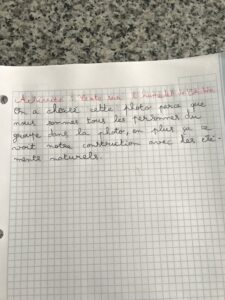 Activité : Texte sur l'
On a choisi cette photo parce que
nous sommes tous les personnes du
groupe dans la photo, en plus ça se
voit notre construction avec les élé-
ments naturels.